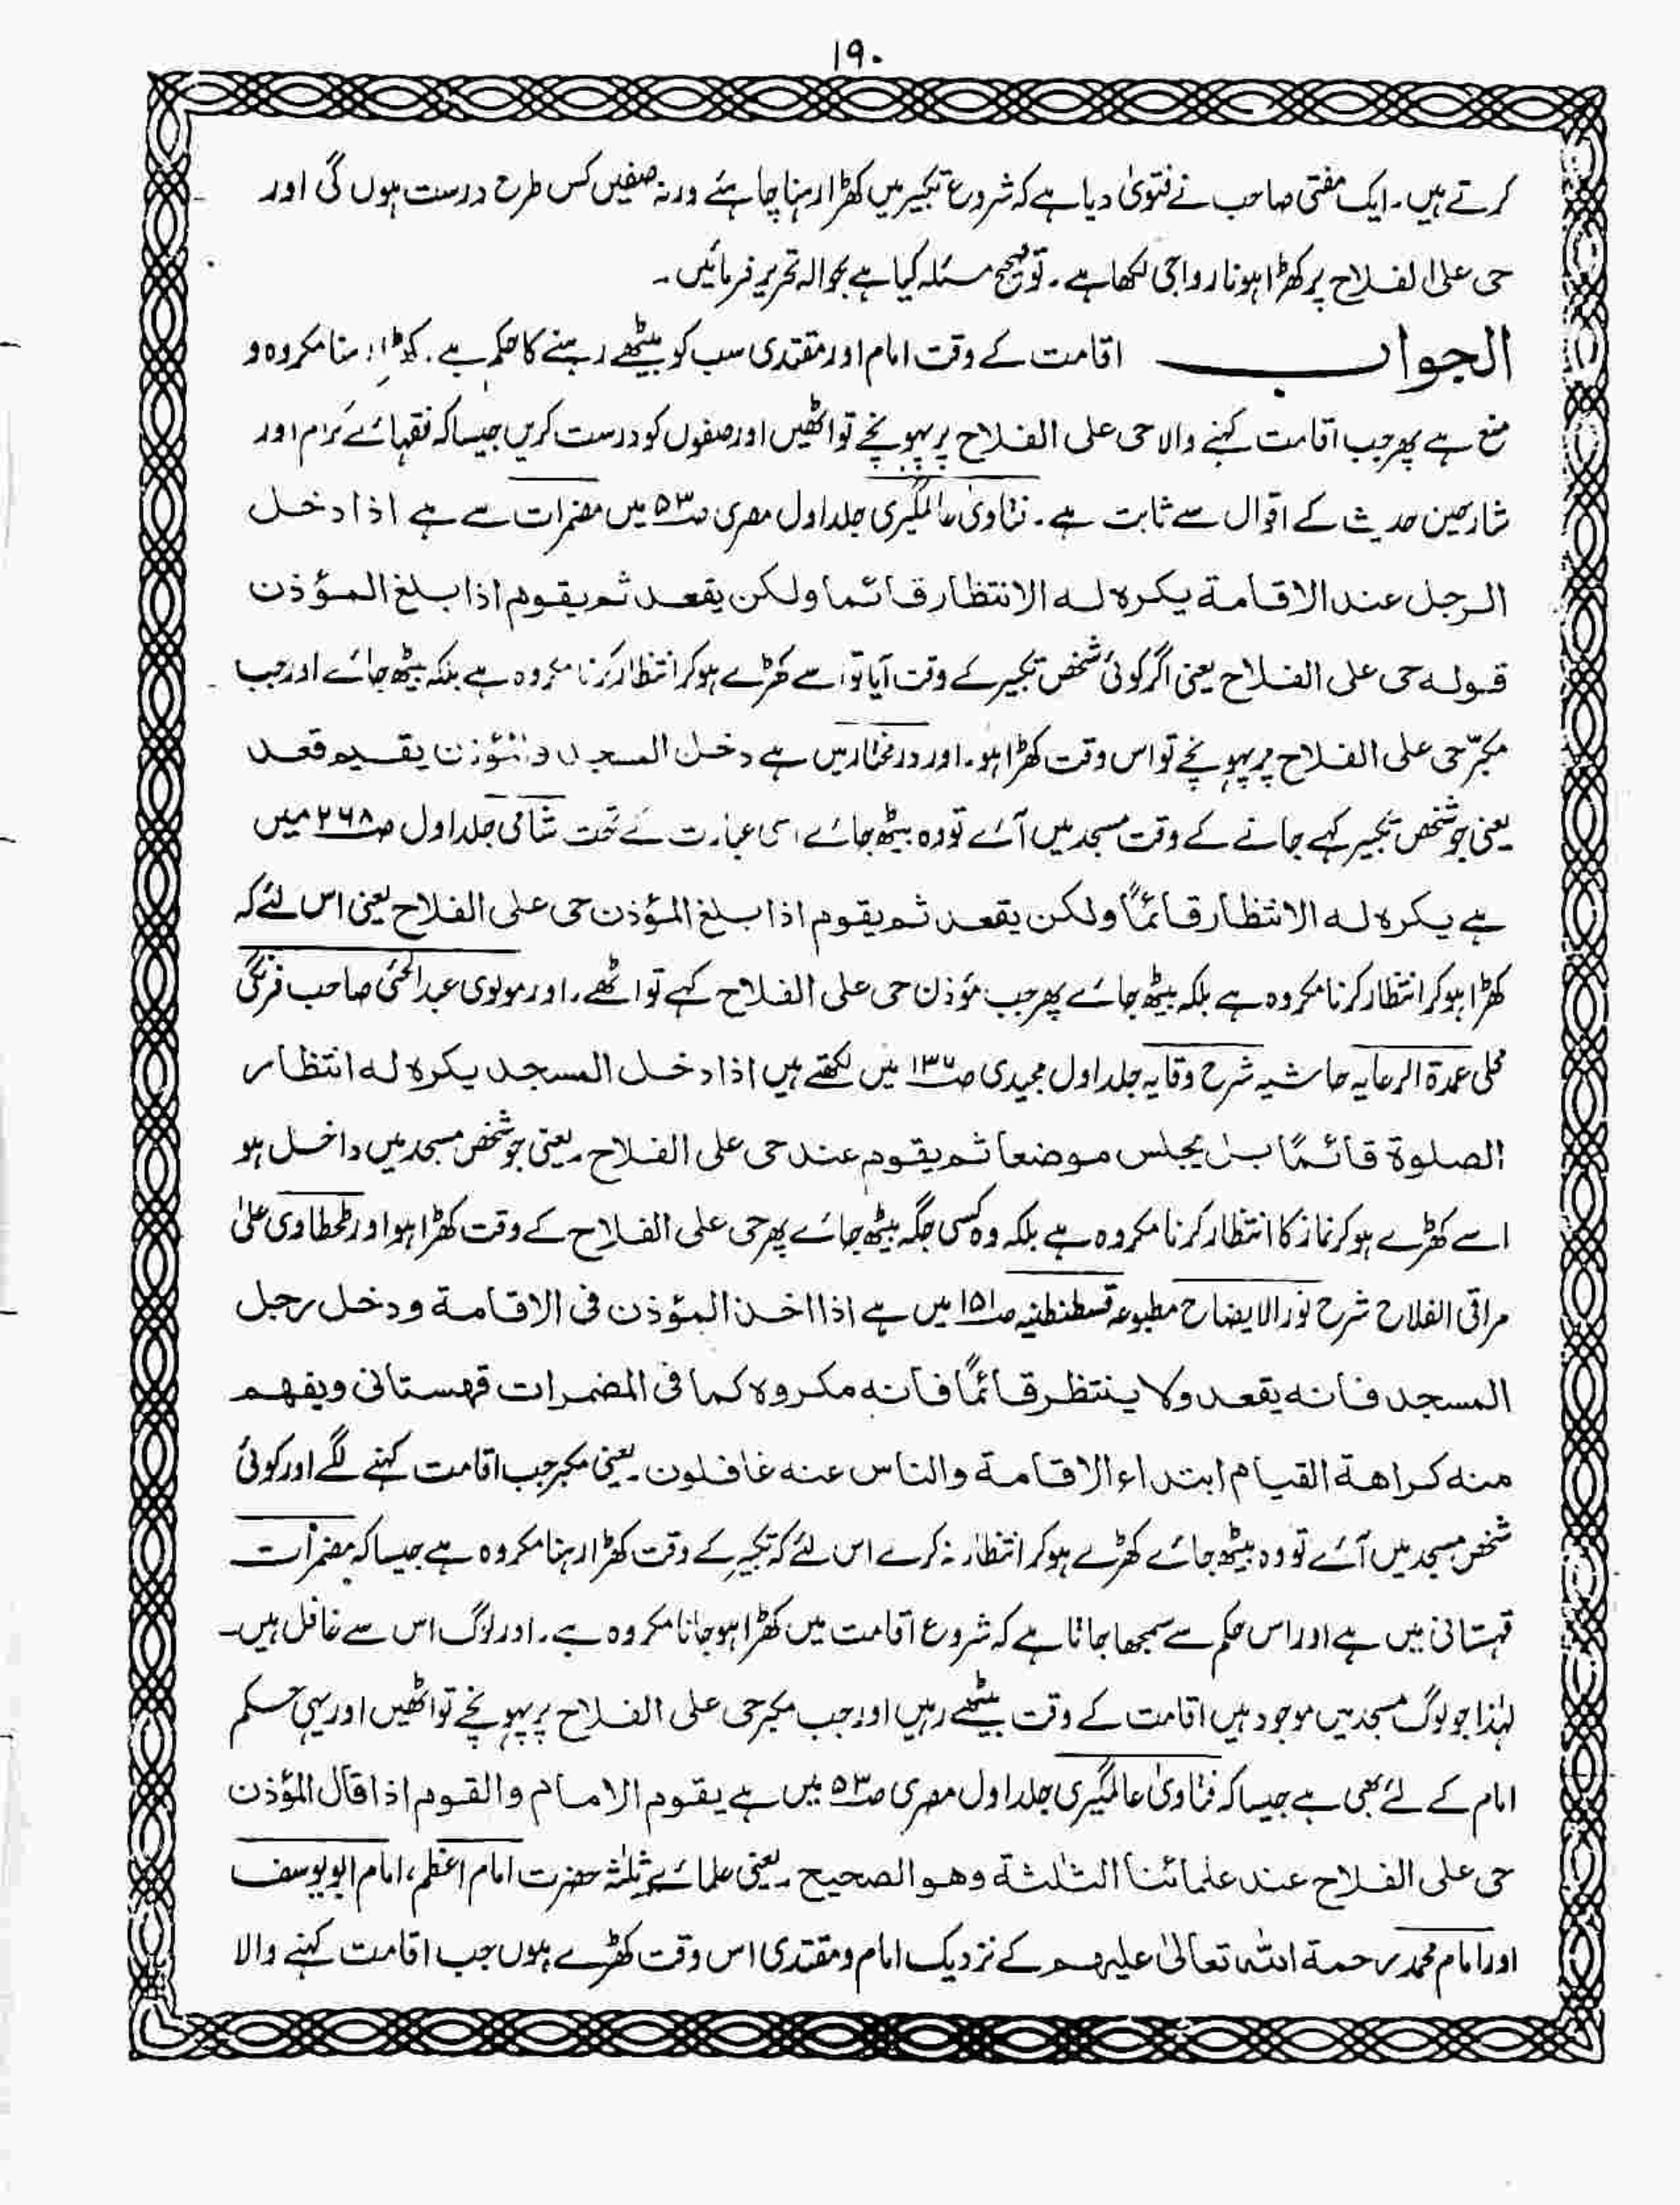 ۱۹۰
کرتے ہیں۔ ایک مفتی صاحب نے فتویٰ دیا ہے کہ شروع تکبیر میں کھڑا رہنا چاہئے ورنہ صفیں کس طرح درست ہوں گی اور
حی علی الفلاح پر کھڑا ہونا رواجی لکھا ہے۔ تو صحیح مسئلہ کیا ہے بحوالہ تحریر فرمائیں۔
الجواب اقامت کے وقت امام اور مقتدی سب کو بیٹھے رہنے کا حکم ہے۔ کھڑا رہنا مکروہ و
منع ہے پھر جب اقامت کہنے والا حی علی الفلاح پر پہونچے تو اٹھیں اور صفوں کو درست کریں جیسا کہ فقہائے کرام اور
شارحین حدیث کے اقوال سے ثابت ہے۔ فتاویٰ عالمگیری جلد اول مصری صـ۵۳ میں مضمرات سے ہے اذا دخل
الرجل عند الاقامة یکرہ لہ الانتظار قائما ولکن یقعد ثم یقوم اذا بلغ المؤذن
قولہ حی علی الفلاح یعنی اگر کوئی شخص تکبیر کے وقت آیا تو اسے کھڑے ہو کر انتظار کرنا مکروہ ہے بلکہ بیٹھ جائے اور جب
مکبّر حی علی الفلاح پر پہونچے تو اس وقت کھڑا ہو۔ اور درمختار میں ہے دخل المسجد والمؤذن یقیم قعد
یعنی جو شخص تکبیر کہے جانے کے وقت مسجد میں آئے تو وہ بیٹھ جائے اسی عبارت کے تحت شامی جلد اول صـ۲۶۸ میں
ہے یکرہ لہ الانتظار قائمًا ولکن یقعد ثم یقوم اذا بلغ المؤذن حی علی الفلاح یعنی اس لئے کہ
کھڑا ہو کر انتظار کرنا مکروہ ہے بلکہ بیٹھ جائے پھر جب مؤذن حی علی الفلاح کہے تو اٹھے۔ اور مولوی عبد الحئی صاحب فرنگی
محلی عمدۃ الرعایہ حاشیہ شرح وقایہ جلد اول مجیدی صـ۱۳۶ میں لکھتے ہیں اذا دخل المسجد یکرہ لہ انتظار
الصلوۃ قائمًا بل یجلس موضعا ثم یقوم عند حی علی الفلاح۔ یعنی جو شخص مسجد میں داخل ہو
اسے کھڑے ہو کر نماز کا انتظار کرنا مکروہ ہے بلکہ وہ کسی جگہ بیٹھ جائے پھر حی علی الفلاح کے وقت کھڑا ہو اور طحطاوی علیٰ
مراقی الفلاح شرح نور الایضاح مطبوعہ قسطنطنیہ صـ۱۵۱ میں ہے اذا اخذ المؤذن فی الاقامة ودخل رجل
المسجد فانہ یقعد ولا ینتظر قائمًا فانہ مکروہ کما فی المضمرات قھستانی ویفھم
منہ کراھة القیام ابتداء الاقامة والناس عنہ غافلون۔ یعنی مکبر جب اقامت کہنے لگے اور کوئی
شخص مسجد میں آئے تو وہ بیٹھ جائے کھڑے ہو کر انتظار نہ کرے اس لئے کہ تکبیر کے وقت کھڑا رہنا مکروہ ہے جیسا کہ مضمرات
قہستانی میں ہے اور اس حکم سے سمجھا جاتا ہے کہ شروع اقامت میں کھڑا ہو جانا مکروہ ہے۔ اور لوگ اس سے غافل ہیں۔
لہٰذا جو لوگ مسجد میں موجود ہیں اقامت کے وقت بیٹھے رہیں اور جب مکبر حی علی الفلاح پر پہونچے تو اٹھیں اور یہی حکم
امام کے لئے بھی ہے جیسا کہ فتاویٰ عالمگیری جلد اول مصری صـ۵۳ میں ہے یقوم الامام والقوم اذا قال المؤذن
حی علی الفلاح عند علمائنا الثلٰثة وھو الصحیح۔ یعنی علمائے ثلٰثہ حضرت امام اعظم، امام ابو یوسف
اور امام محمد رحمة اللہ تعالیٰ علیہم کے نزدیک امام و مقتدی اس وقت کھڑے ہوں جب اقامت کہنے والا